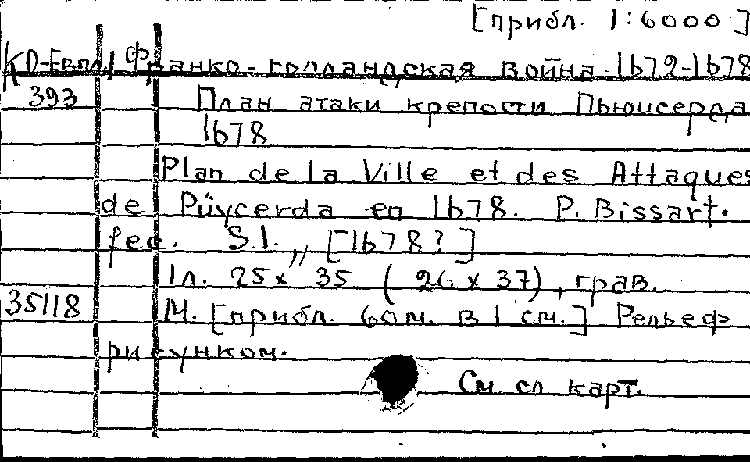 [прибл. 1:6000.]
К0-Евп./ Франко-голландская война-1672-1678
393 План атаки крепости Пьюисерда
1678
Plan de la Ville et des Attaques
de Püycerda en 1678. P. Bissart.
fec. S.l.,, [1678?]
1л. 25x35 (26x37), грав.
35118 М. [прибл. 60м. в 1 см.] Рельеф
рисунком.
См сл карт.